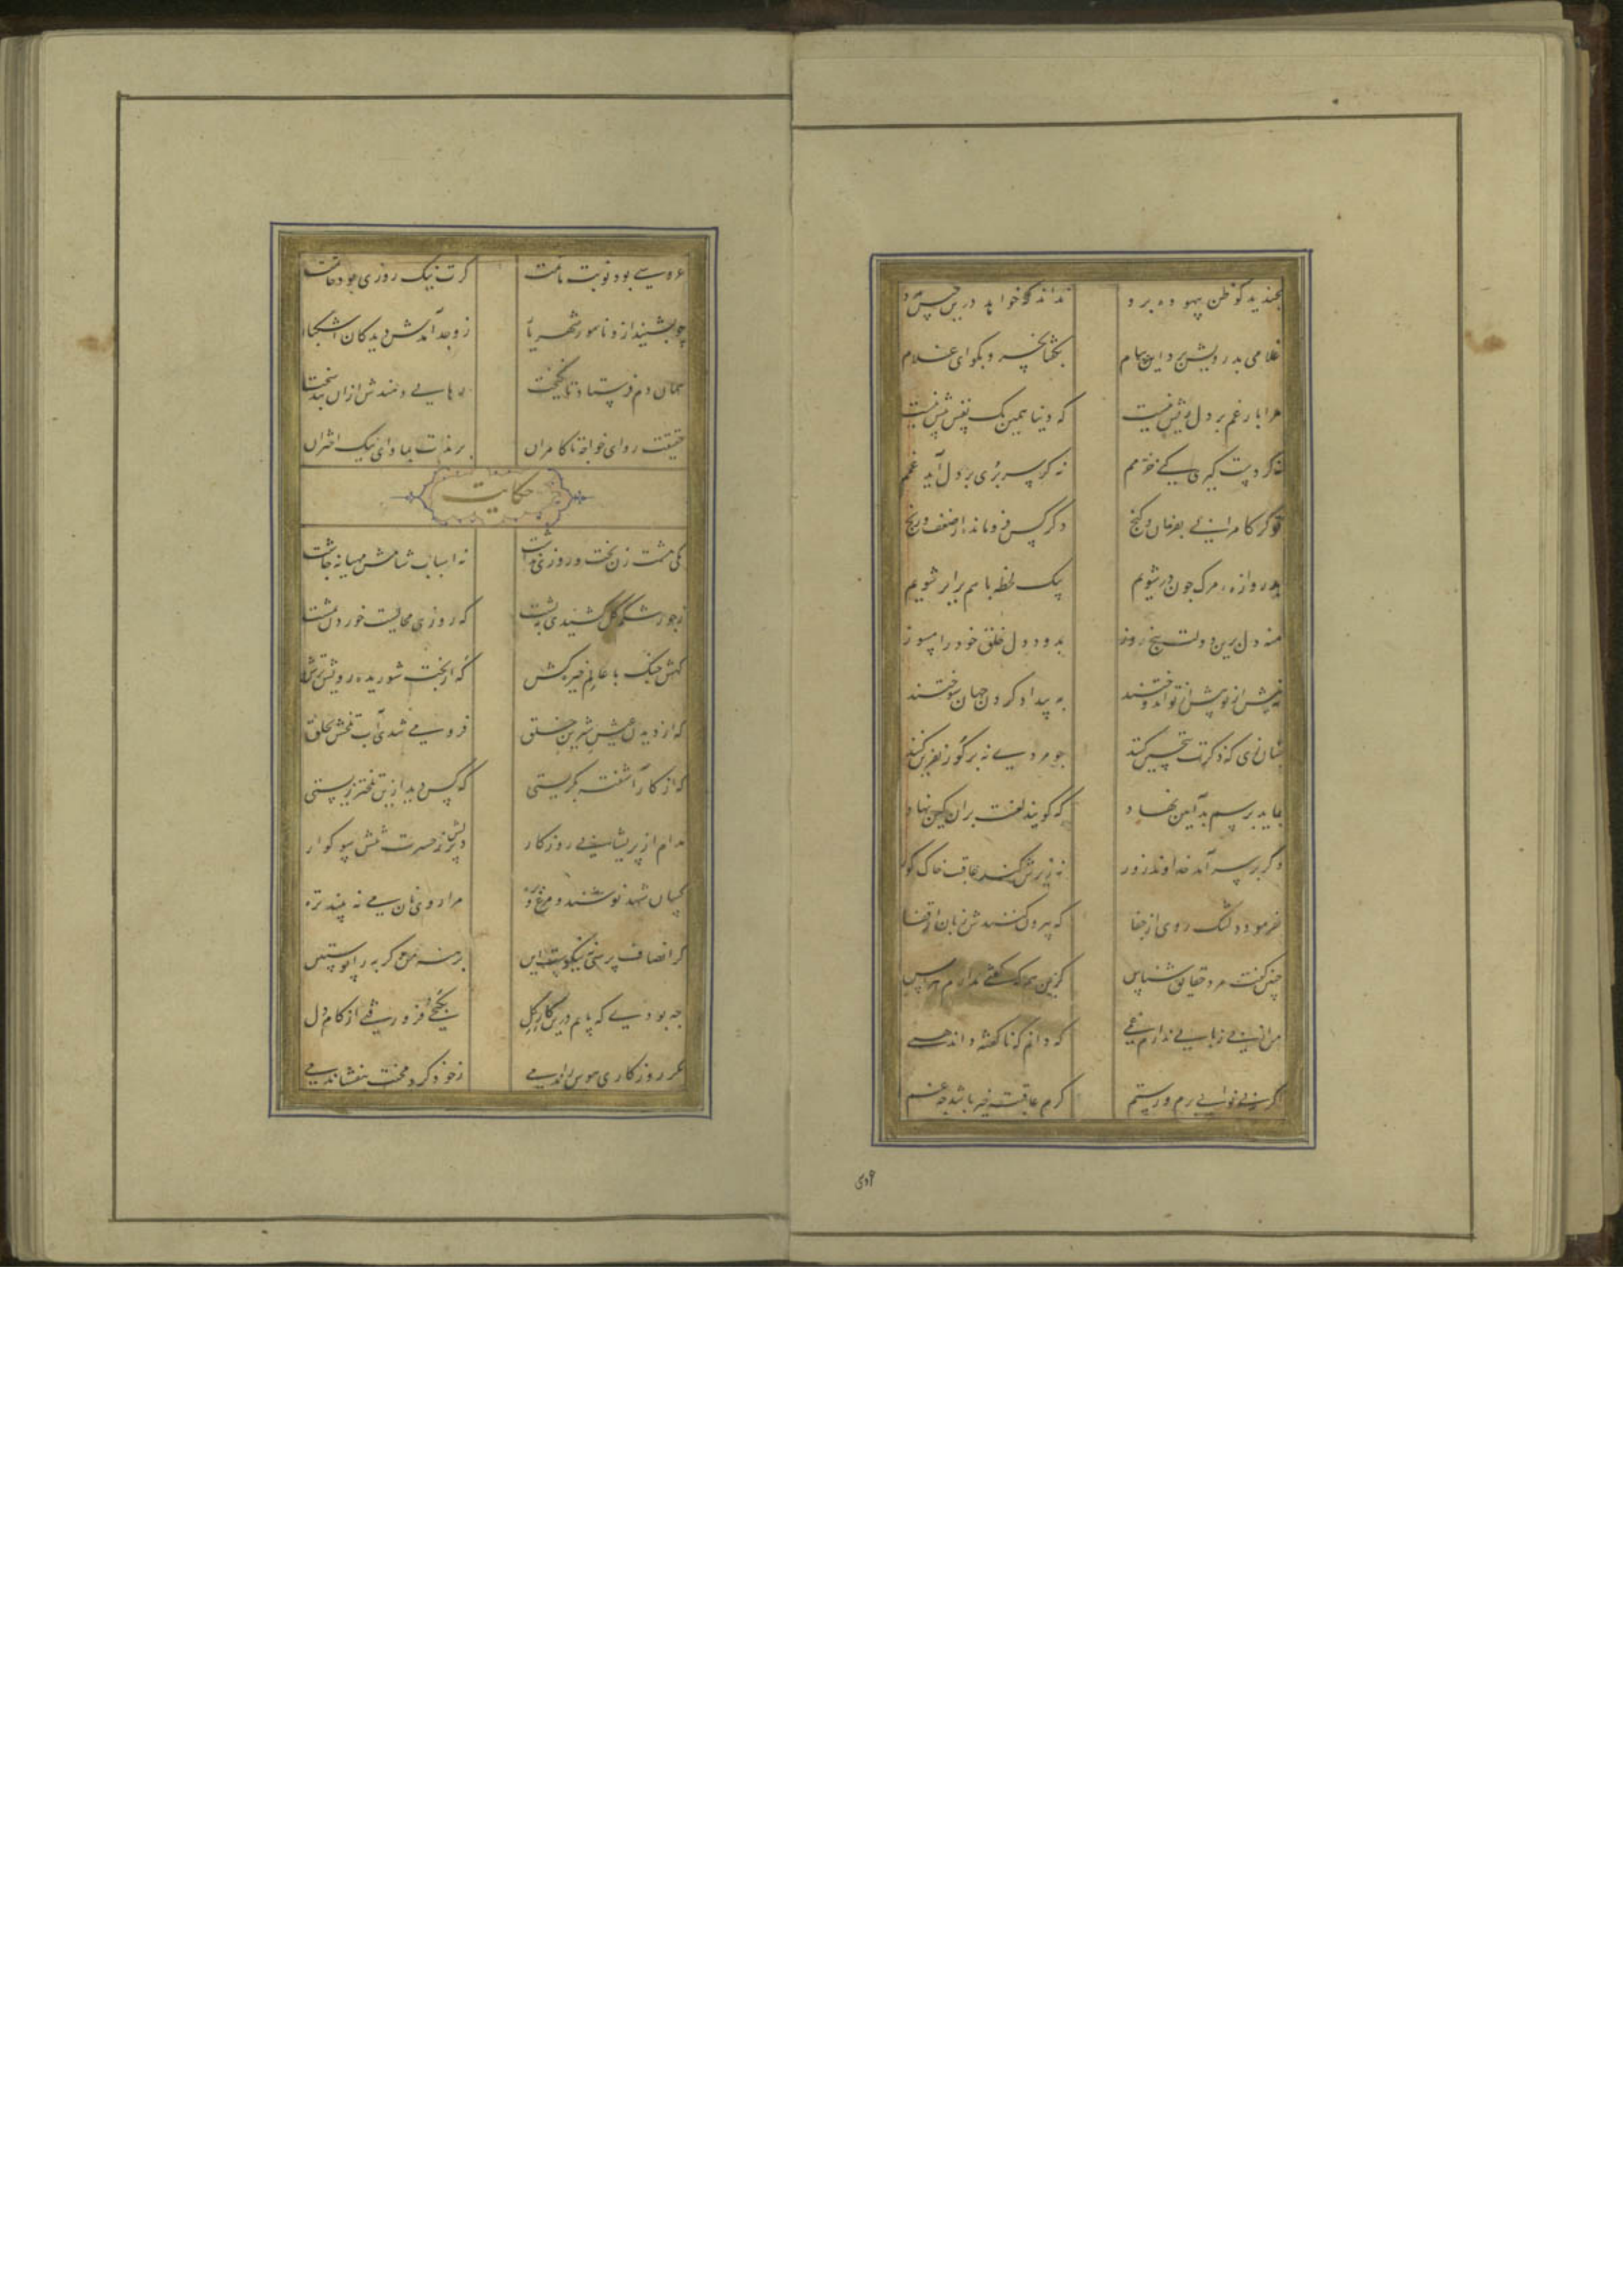 بخندید کو ظن بیهوده برد نداند که خواهد درین حبس مرد
غلامی بدرویش برد این پیام بگفتا بخسرو بگو ای غلام
مرا بار غم بر دل ریش نیست که دنیا همین یک نفس بیش نیست
نه گر دستگیری کنی خرمم نه گر سر بری بر دل آید غمم
تو گر کامرانی بفرمان و گنج دگر کس فرومانده از ضعف و رنج
بدروازه مرگ چون در شویم بیک لحظه با هم برابر شویم
منه دل برین دولت پنج روز بدود دل خلق خود را مسوز
نه پیش از تو بیش از تو اندوختند به بیداد کردن جهان سوختند
چنان زی که ذکرت بتحسین کنند چو مردی نه بر گور نفرین کنند
نباید برسم بد آیین نهاد که گویند لعنت بران کین نهاد
وگر بر سر آید خداوند زور نه زیرش کند عاقبت خاک گور
بفرمود دلتنگ روی از جفا که بیرون کنندش زبان از قفا
چنین گفت مرد حقایق شناس کزین هم که گفتی ندارم هراس
من از بی زبانی ندارم غمی که دانم که ناگفته داند همی
اگر بی نوایی برم ور ستم گرم عاقبت خیر باشد چه غم
اودی
عروسی بود نوبت ماتمت گرت نیک روزی بود خاتمت
حکایت
یکی مشت زن بخت و روزی نداشت نه اسباب شامش مهیا نه چاشت
ز جور شکم گل کشیدی به پشت که روزی محالست خوردن بمشت
گهش جنگ با عالم خیره کش گه از بخت شوریده رویش ترش
گه از دیدن عیش شیرین خلق فرو می شدی آب تلخش بحلق
گه از کار آشفته بگریستی که کس دید ازین تلختر زیستی
مدام از پریشانی روزگار دلش پر ز حسرت تنش سوگوار
کسان شهد نوشند و مرغ و بره مرا روی نان می نبیند تره
گر انصاف پرسی نه نیکوست این برهنه من و گربه را پوستین
چه بودی که پایم درین کار گل بگنجی فرو رفتی از کام دل
مگر روزگاری هوس راندمی ز خود گرد محنت بیفشاندمی